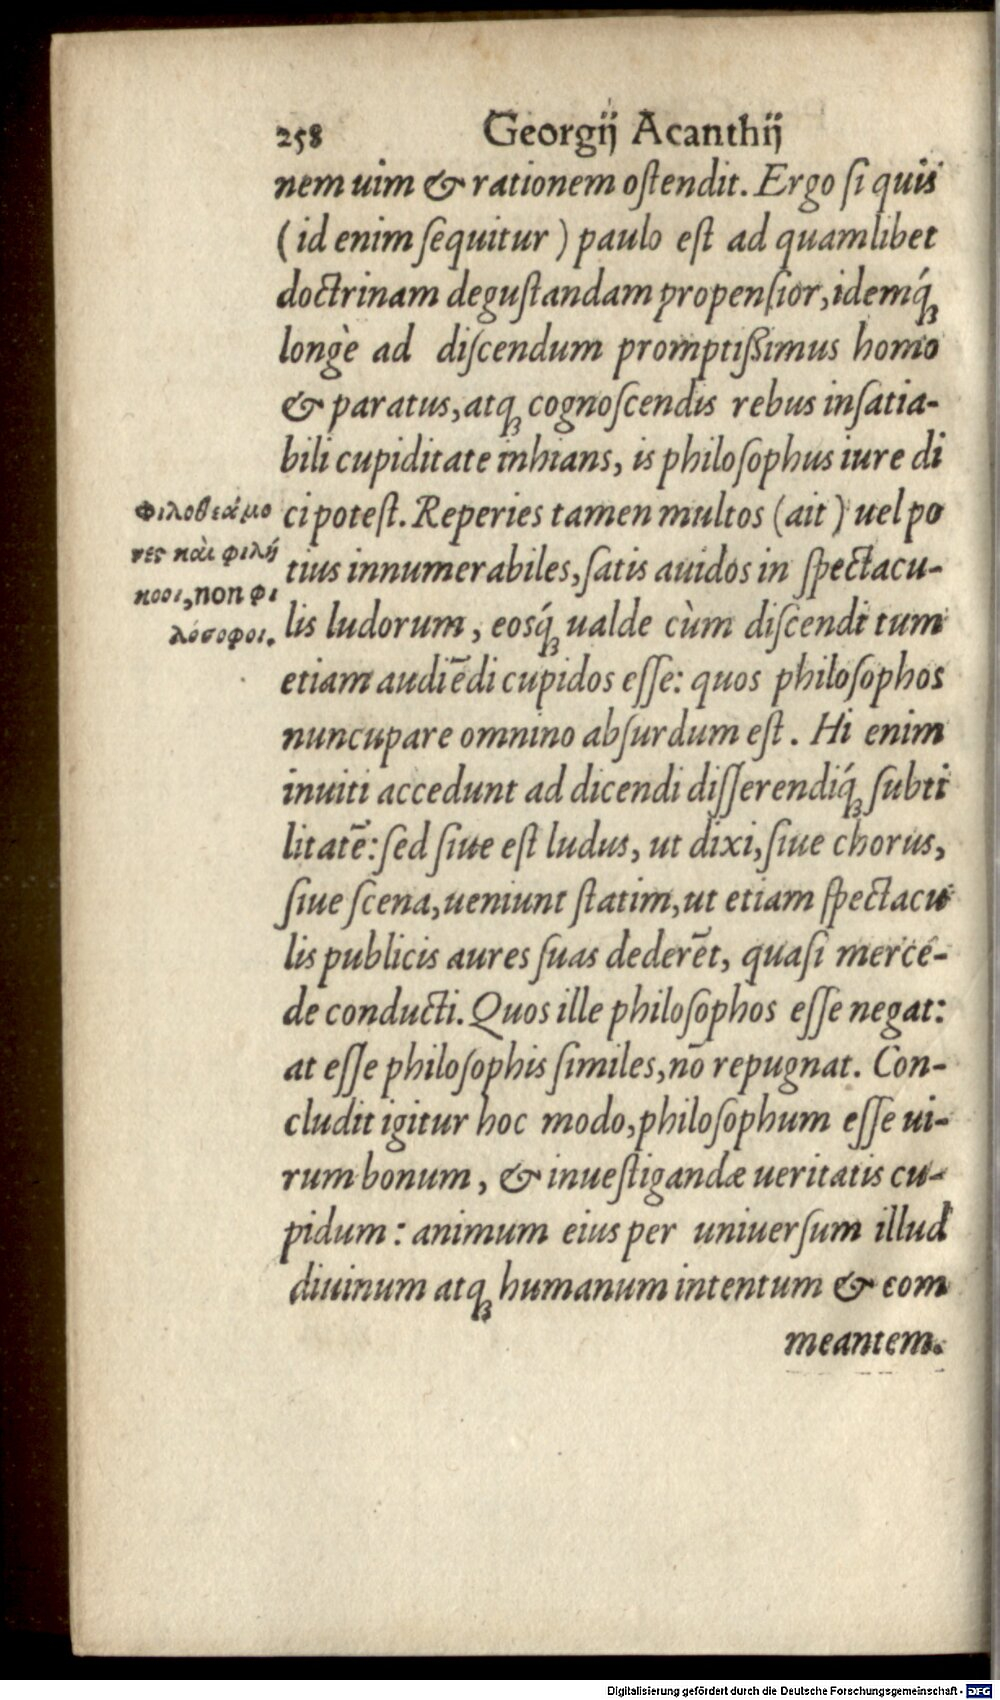 258 Georgij Acanthij
nem uim & rationem oſtendit. Ergo ſi quis
(id enim ſequitur) paulo eſt ad quamlibet
doctrinam deguſtandam propenſior, idemq́;
longè ad diſcendum promptiſsimus homo
& paratus, atq; cognoſcendis rebus inſatia-
bili cupiditate inhians, is philoſophus iure di
ci poteſt. Reperies tamen multos (ait) uel po
tius innumerabiles, ſatis auidos in ſpectacu-
lis ludorum, eosq́; ualde cùm diſcendi tum
etiam audiēdi cupidos eſſe: quos philoſophos
nuncupare omnino abſurdum eſt. Hi enim
inuiti accedunt ad dicendi diſſerendiq́; ſubti
litatē: ſed ſiue eſt ludus, ut dixi, ſiue chorus,
ſiue ſcena, ueniunt ſtatim, ut etiam ſpectacu
lis publicis aures ſuas dederēt, quaſi merce-
de conducti. Quos ille philoſophos eſſe negat:
at eſſe philoſophis ſimiles, nō repugnat. Con-
cludit igitur hoc modo, philoſophum eſſe ui-
rum bonum, & inueſtigandæ ueritatis cu-
pidum: animum eius per uniuerſum illud
diuinum atq; humanum intentum & com
meantem.
Φιλοθεάμο
νες καὶ φιλή
κοοι, non φι
λόσοφοι.
Digitalisierung gefördert durch die Deutsche Forschungsgemeinschaft - DFG